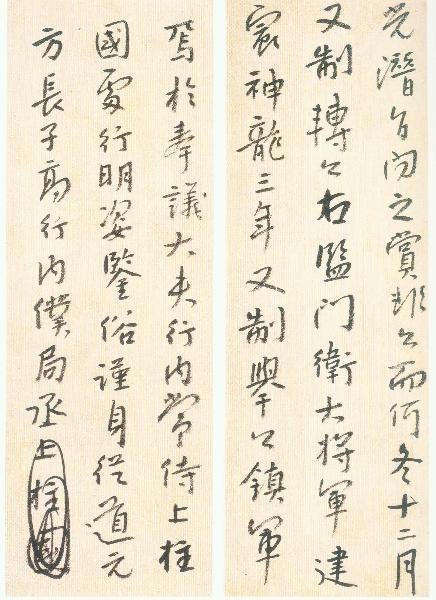 潛之賞公而何冬十二月
又制轉公右監门衛大将軍建
神龍三年又制舉公鎮軍
焉於奉議大夫行内常侍上柱
國處行明姿鑒俗謹身從道元
方長子高行内僕局丞上柱國